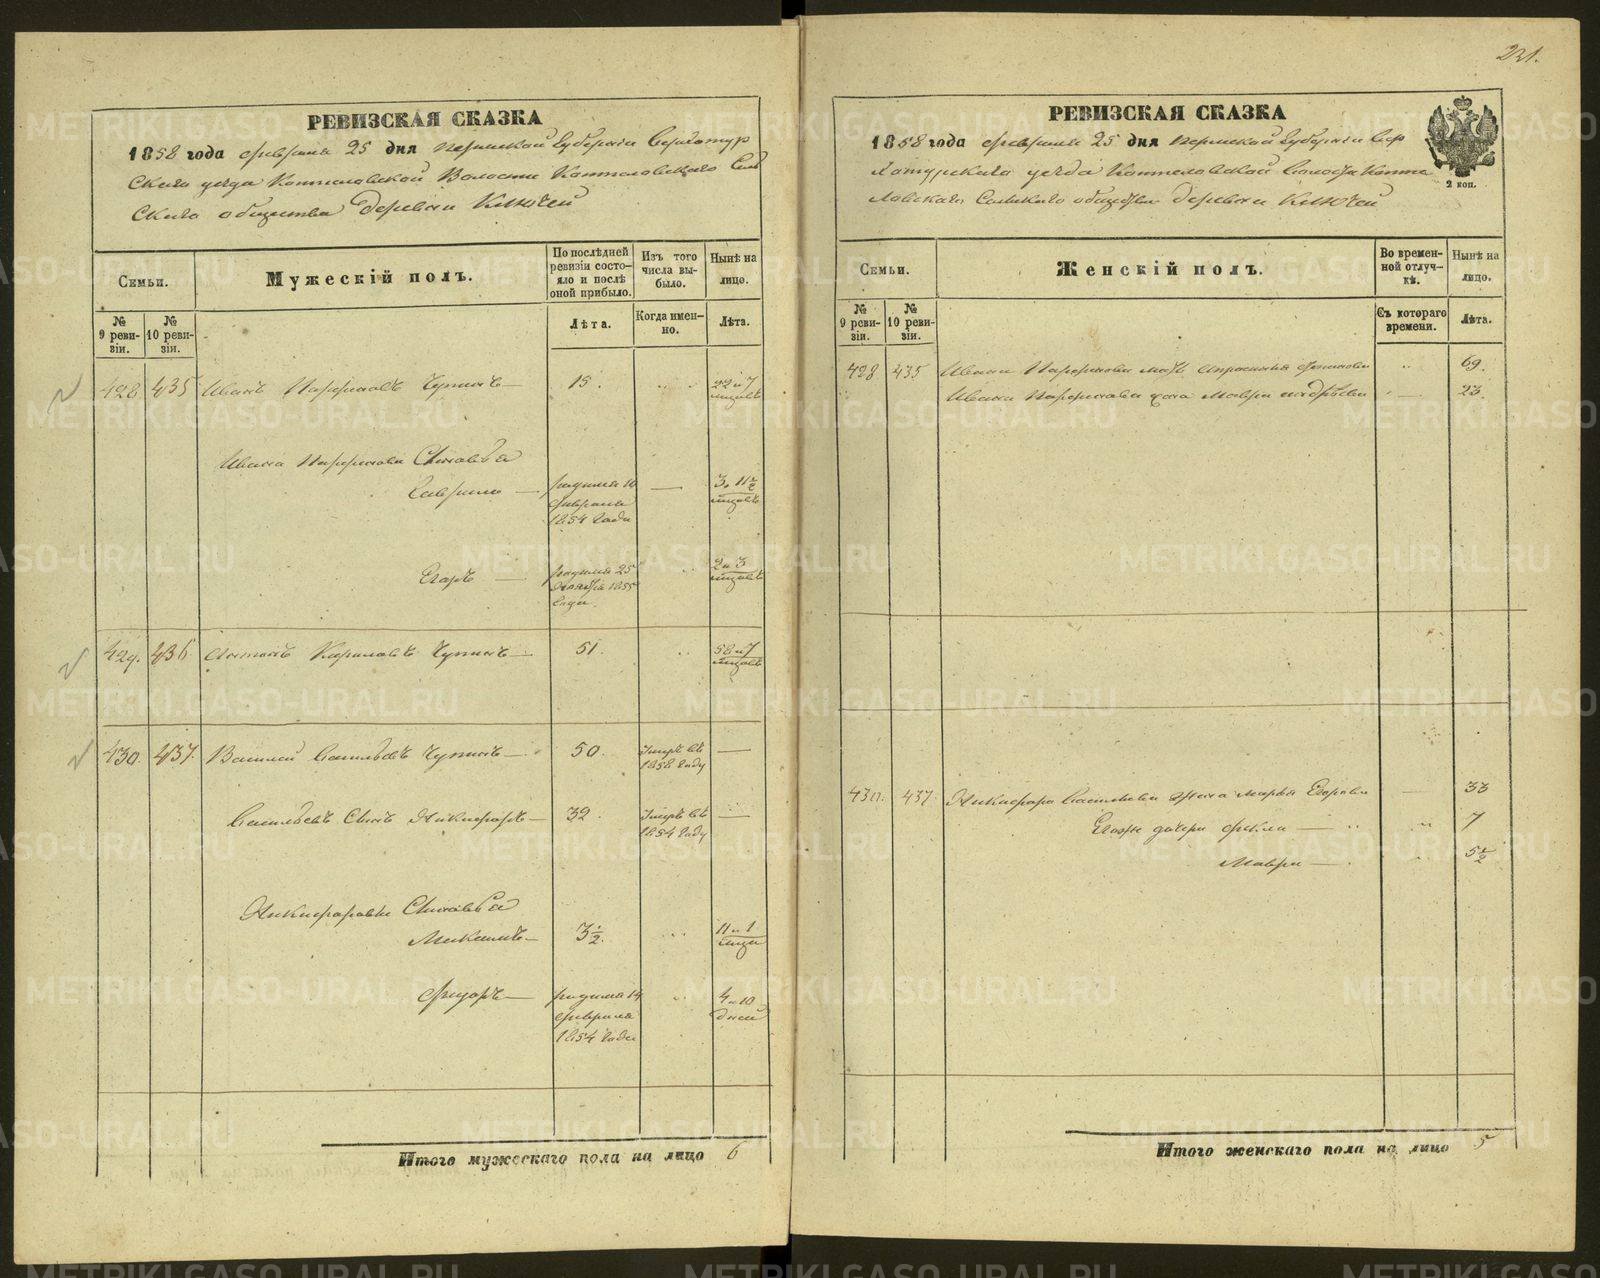 231.
РЕВИЗСКАЯ СКАЗКА
1858 года февраля 25 дня Пермской Губернии Верхотур
скаго уезда Коптеловской Волости Коптеловскаго Сель
скаго общества Деревни Ключей
Семьи.
Мужескій полъ.
По послѣдней ревизіи состояло и послѣ оной прибыло.
Изъ того числа выбыло.
Нынѣ на лицо.
№ 9 ревизіи.
№ 10 ревизіи.
Лѣта.
Когда именно.
Лѣта.
428 435 Иванъ Парфеновъ Чупинъ 15. 22 и 7 мѣсяцовъ
Ивана Парфенова Сыновья
Гаврило родился 10 февраля 1854 года 3. 11 1/2 мѣсяцовъ
Егоръ родился 25 1855 года. 2 и 3 мѣсяцовъ
429. 436. Антонъ Кириловъ Чупинъ 51. 58 и 7 мѣсяцовъ
430. 437. Василей Савельевъ Чупинъ 50. Умеръ въ 1858 году
Сынъ Никифоръ 32. Умеръ въ 1854 году
Никифоровы Сыновья
Максимъ 3 1/2. 11 и 1 мѣсяца
Федоръ родился 14 февраля 1854 года 4 и 10 дней
Итого мужескаго пола на лицо 6
РЕВИЗСКАЯ СКАЗКА
1858 года февраля 25 дня Пермской Губернии Вер
хотурскаго уезда Коптеловской Волости Копте
ловскаго Сельскаго общества Деревни Ключей
2 коп.
Семьи.
Женскій полъ.
Во временной отлучкѣ.
Нынѣ на лицо.
№ 9 ревизіи.
№ 10 ревизіи.
Съ котораго времени.
Лѣта.
428 435 Ивана Парфенова мать 69.
Ивана Парфенова жена Мавра Андрѣева 23.
430. 437. Никифора Васильева жена Марья Егорова 33
Егоже дочери Фекла 7
Мавра 5 1/2
Итого женскаго пола на лицо 5
METRIKI.GASO-URAL.RU